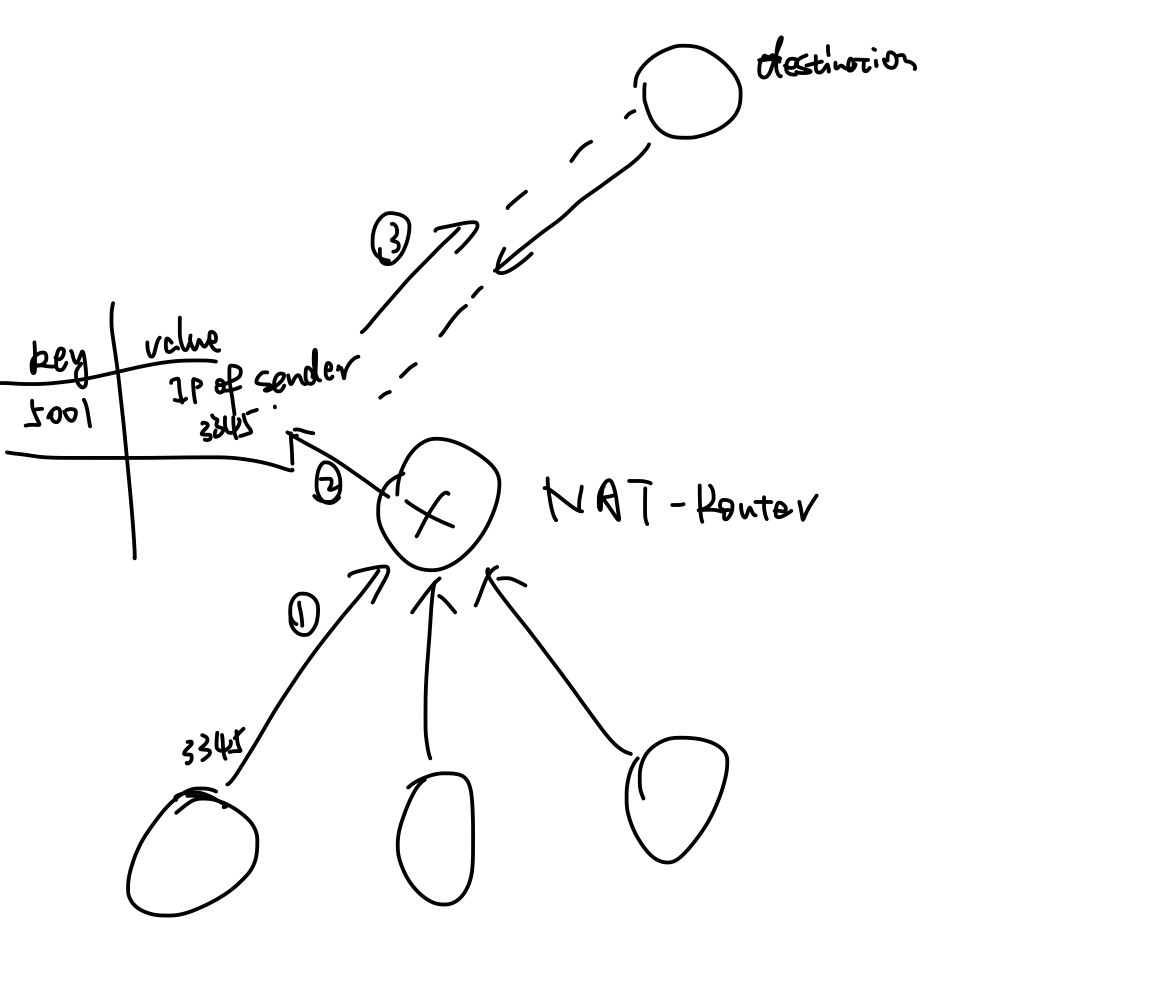 destination
3
key value
5001 IP of sender
3345
2
NAT-Router
1
3345